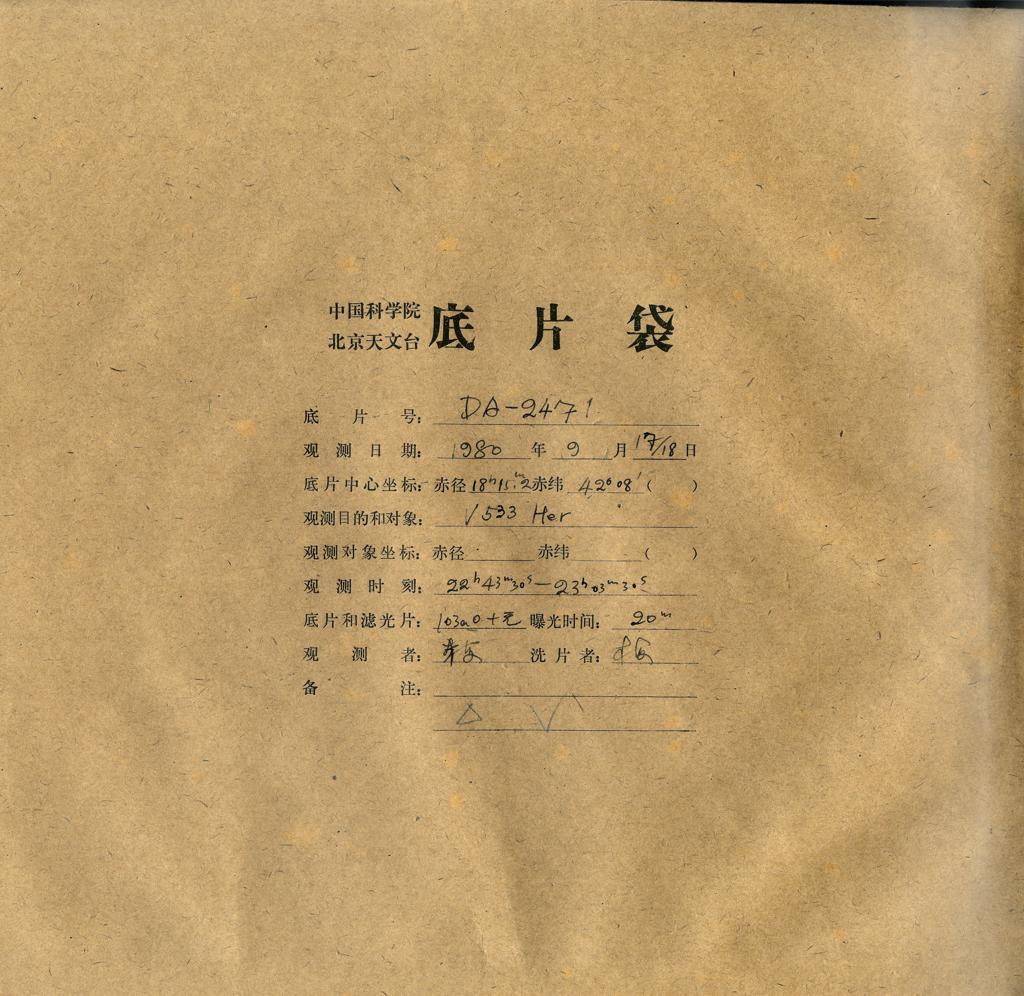 中国科学院
北京天文台
底 片 袋
底 片 号: DA-2471
观 测 日 期: 1980 年 9 月 17/18 日
底片中心坐标: 赤径 18ʰ15ᵐ.2 赤纬 42°08′ ( )
观测目的和对象: V533 Her
观测对象坐标: 赤径 赤纬 ( )
观 测 时 刻: 22ʰ43ᵐ30ˢ—23ʰ03ᵐ30ˢ
底片和滤光片: 103aO+无 曝光时间: 20ᵐ
观 测 者: 洗 片 者:
备 注:
△ √